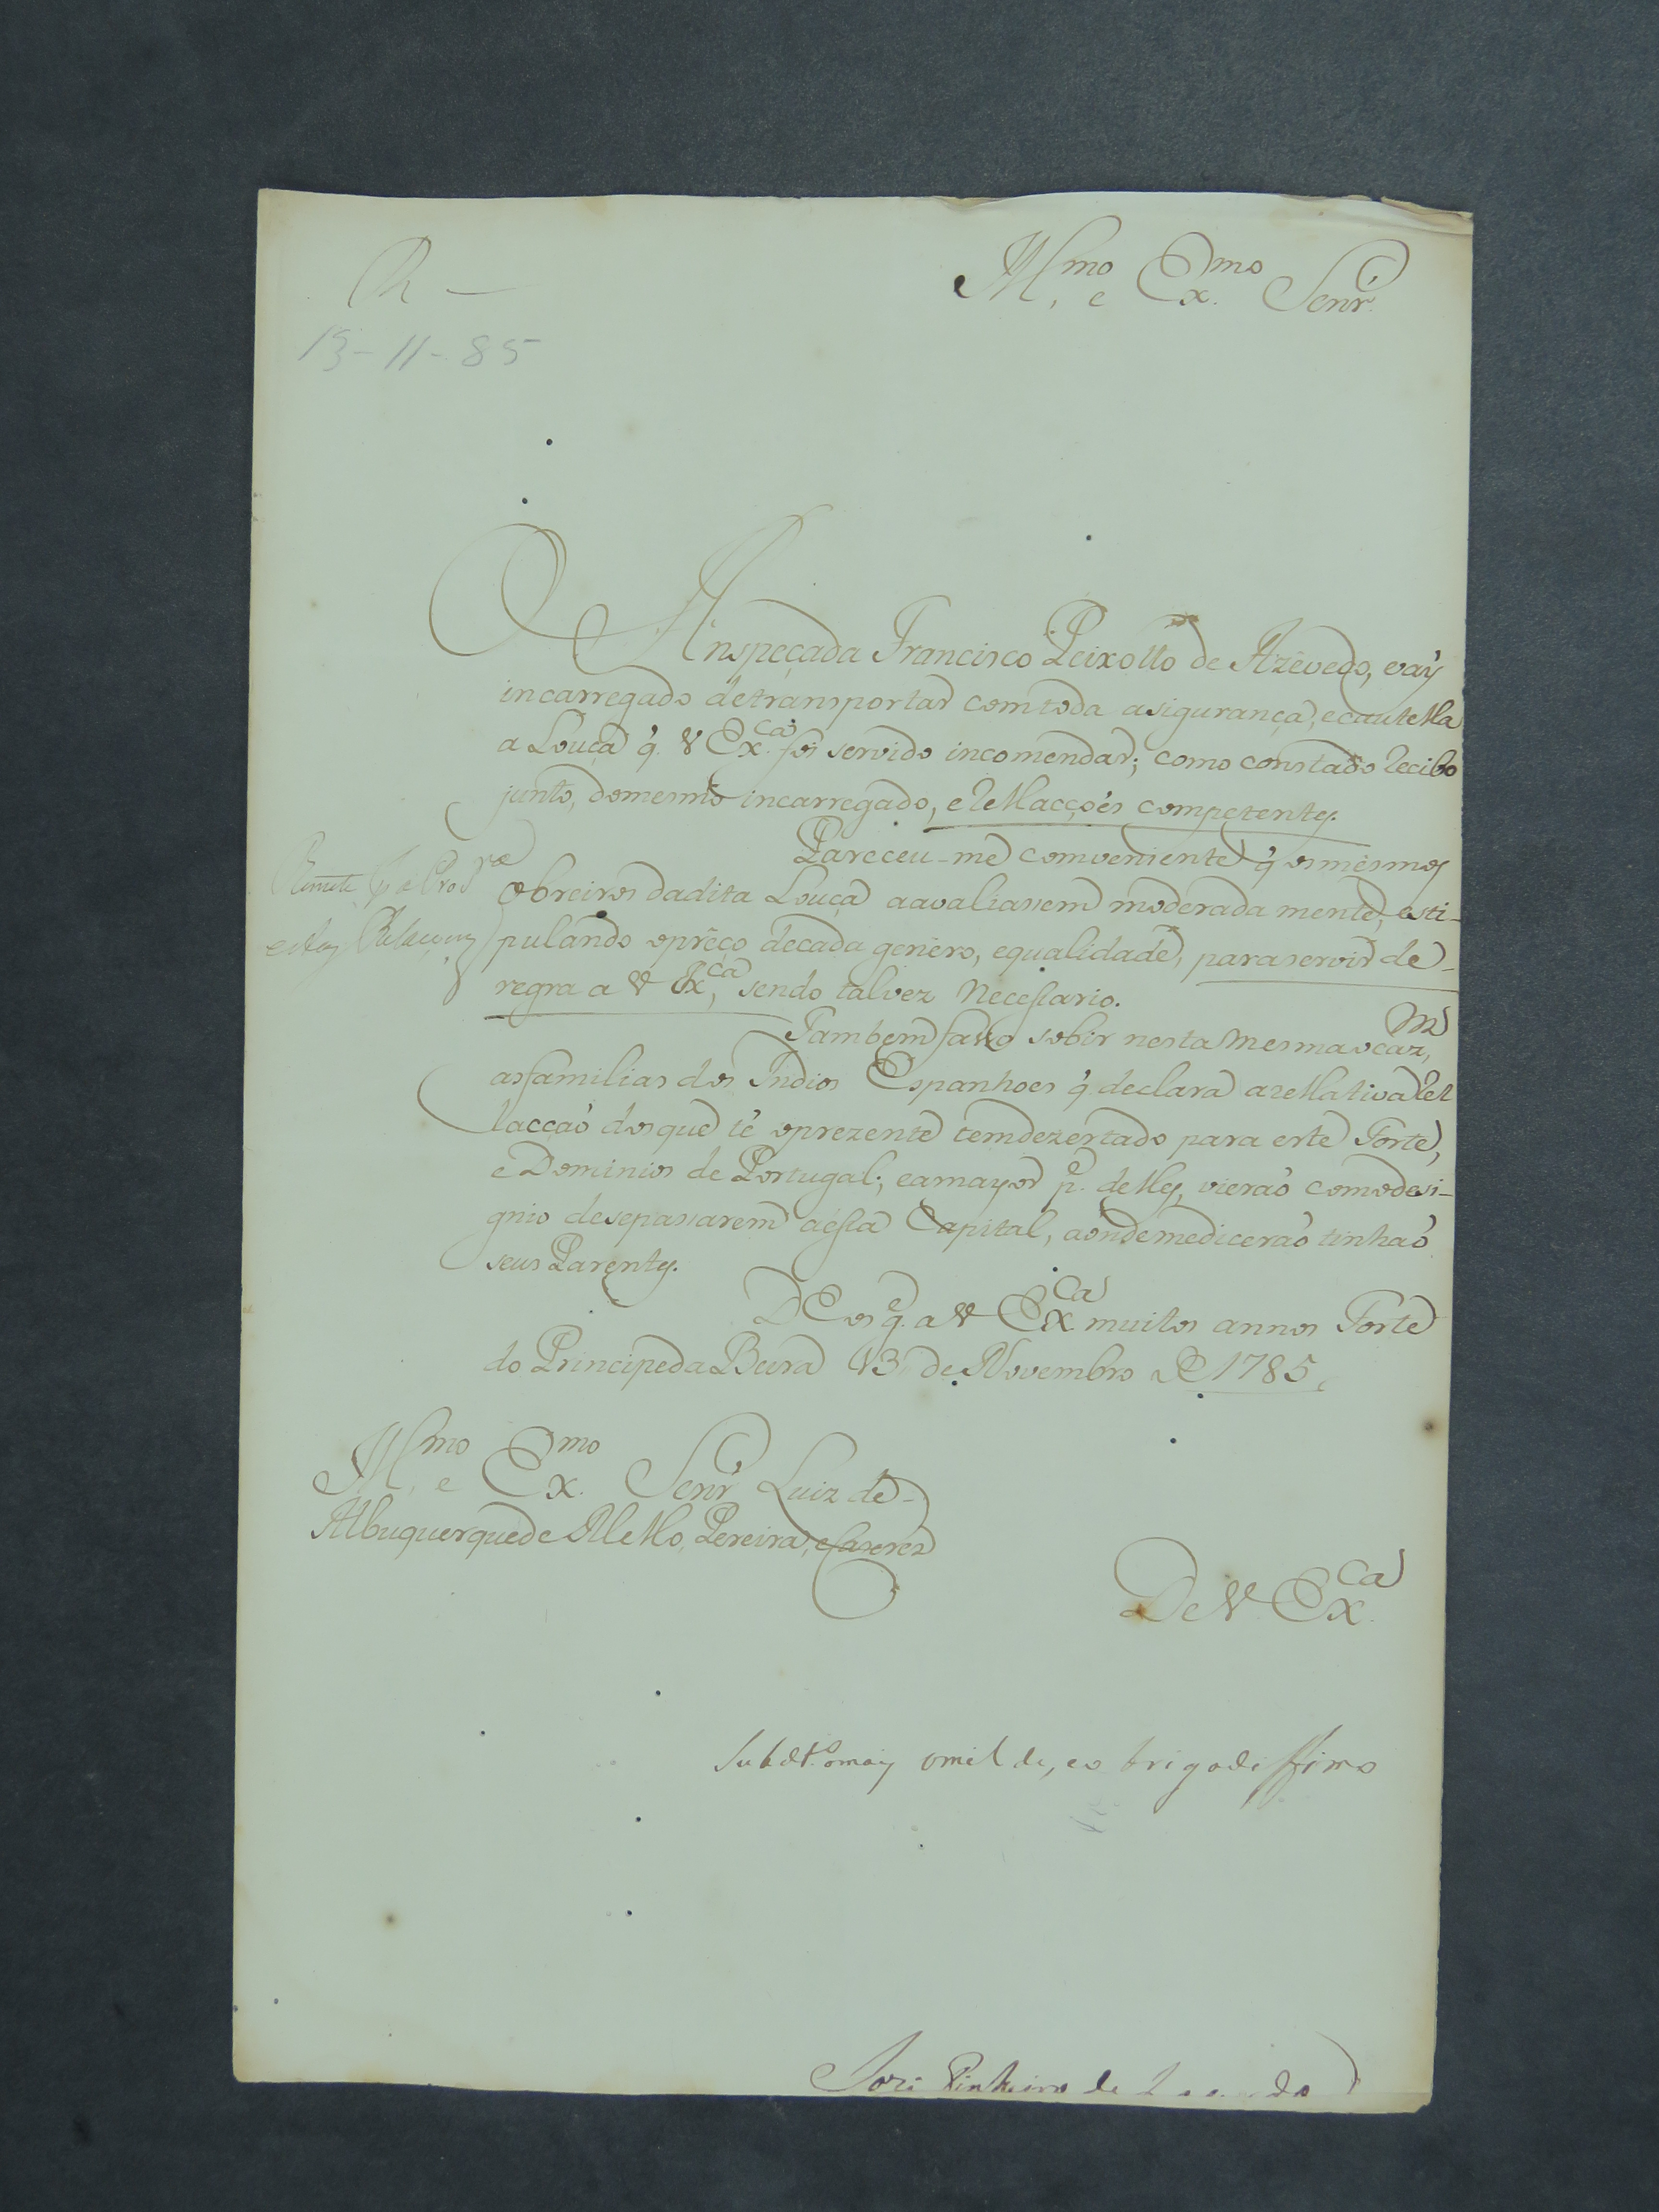 R —
Illmo. e Exmo. Senr.
13-11-85
Anspeçada Francisco Peixotto de Azevedo, vay
incarregado de transportar com toda a sigurança, e cautella
a Louça q. V Exca. foi servido incomendar; como consta do recibo
junto, do mesmo incarregado, e rellacçoẽs competentes.
Pareceu-me comveniente q os mesmos
obreiros da dita Louça a avaliassem moderada mente, esti-
pulando o prêço de cada genero, e qualidade, para servir de-
regra a V Exca, sendo talvez Necessario.
Remete-se
estas Relaçoens
Tambem fasso sobir nesta Mesma ocazm,
as familias dos Indios Espanhoes q. declara a rellativa Rel
lacçaõ dos que té o prezente tem dezertado para este Forte,
e Dominios de Portugal; e a mayor pe. delles, vieraõ com o desi-
gnio de se passarem a essa Capital, aonde me diceraõ tinhaõ
seus Parentes.
Deos ge. a V Exca muitos annos Forte
do Principe da Beira 13 de Novembro de 1785,
Illmo. e Exmo. Senr. Luiz de-
Albuquerque de Mello, Pereira, e Caseres
De V. Exca.
Subdto. o mais omilde, e obrigadissimo
Joze Pinheiro de Lacerda